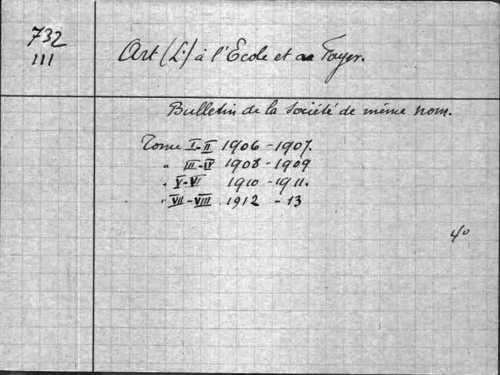 732
III
Art (L') à l'École et au Foyer.
Bulletin de la Société de même nom.
Tome I-II 1906-1907.
" III-IV 1908-1909
" V-VI 1910-1911.
" VII-VIII 1912-13
4°